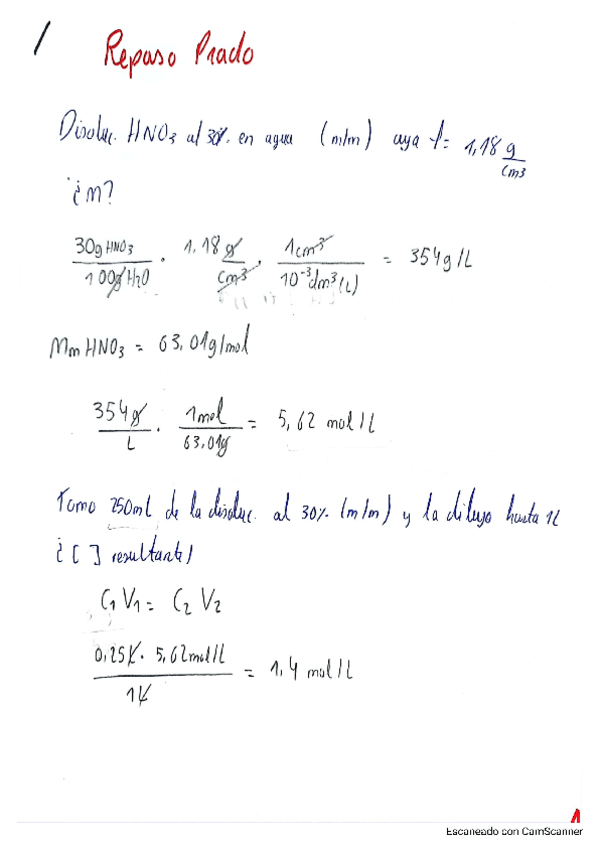 1
Repaso Prado
Disoluc. HNO3 al 30% en agua (m/m) cuya f = 1,18 g/cm3
¿M?
30g HNO3 / 100g H2O · 1,18 g/cm3 · 1cm3 / 10-3 dm3 (L) = 354g/L
Mm HNO3 = 63,01g/mol
354g/L · 1mol/63,01g = 5,62 mol/L
Tomo 250ml de la disoluc. al 30% (m/m) y la diluyo hasta 1L
¿[ ] resultante?
C1 V1 = C2 V2
0,25L · 5,62mol/L / 1L = 1,4 mol/L
1
Escaneado con CamScanner